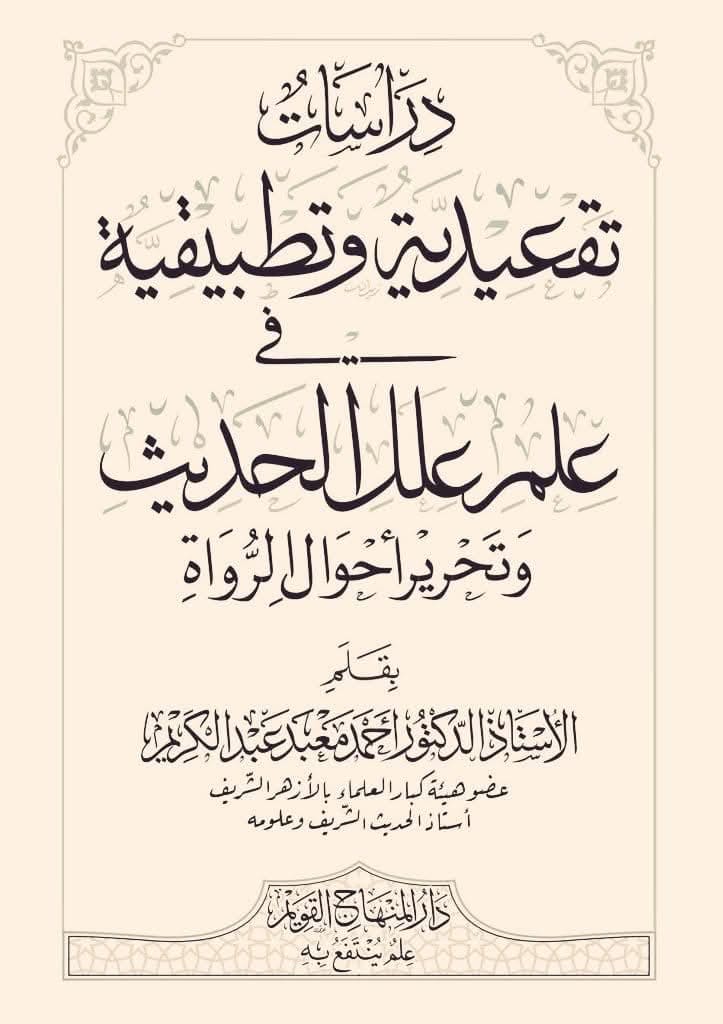 دِرَاسَاتٌ
تَقْعِيدِيَّةٌ وَتَطْبِيقِيَّةٌ
فِي
عِلْمِ عِلَلِ الْحَدِيثِ
وَتَحْرِيرِ أَحْوَالِ الرُّوَاةِ
بِقَلَمِ
الأُسْتَاذِ الدُّكْتُورِ أَحْمَدَ مَعْبَدٍ عَبْدِ الْكَرِيمِ
عضو هيئة كبار العلماء بالأزهر الشّريف
أستاذ الحديث الشّريف وعلومه
دَارُ الْمِنْهَاجِ الْقَوِيمِ
عِلْمٌ يُنْتَفَعُ بِهِ